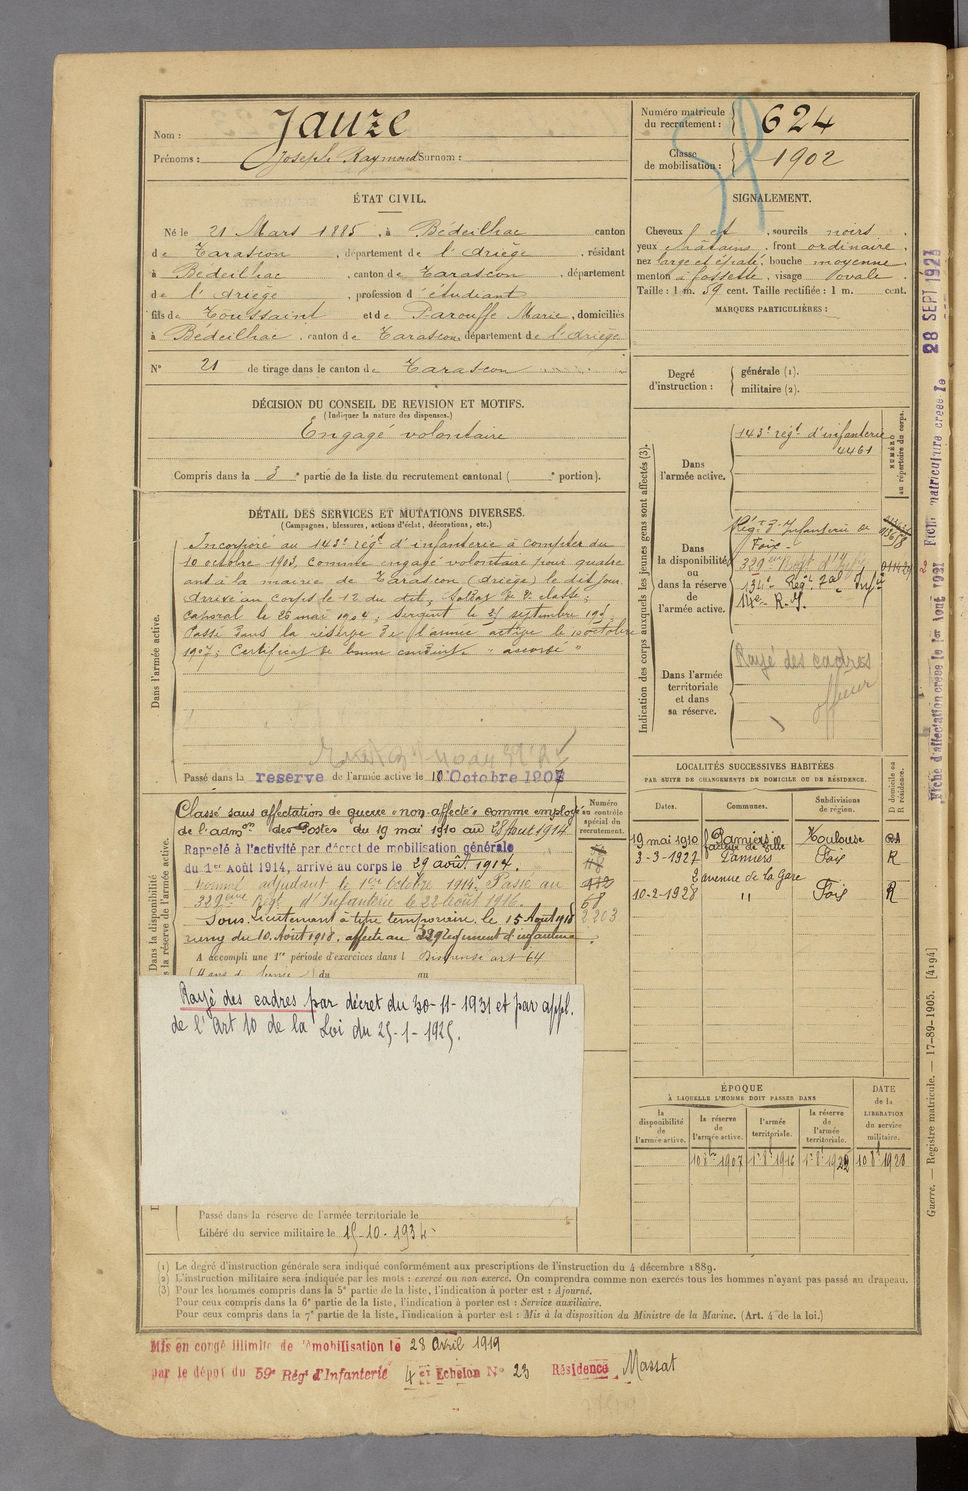 Nom : Jauze
Prénoms : Joseph Raymond Surnom :
Numéro matricule du recrutement : 624
Classe de mobilisation : 1902
ÉTAT CIVIL.
Né le 21 Mars 1885, à Bédeilhac canton
de Tarascon, département de l'Ariège, résidant
à Bédeilhac, canton de Tarascon, département
de l'Ariège, profession d'étudiant
fils de Toussaint et de Parouffe Marie, domiciliés
à Bédeilhac, canton de Tarascon, département de l'Ariège
N° 21 de tirage dans le canton de Tarascon
SIGNALEMENT.
Cheveux et, sourcils noirs,
yeux châtains, front ordinaire,
nez large et épaté, bouche moyenne,
menton à fossette, visage ovale.
Taille : 1 m. 59 cent. Taille rectifiée : 1 m. cent.
MARQUES PARTICULIÈRES :
Degré d'instruction : générale (1).
militaire (2).
DÉCISION DU CONSEIL DE REVISION ET MOTIFS.
(Indiquer la nature des dispenses.)
Engagé volontaire
Compris dans la 3e partie de la liste du recrutement cantonal ( e portion).
DÉTAIL DES SERVICES ET MUTATIONS DIVERSES.
(Campagnes, blessures, actions d'éclat, décorations, etc.)
Dans l'armée active.
Incorporé au 143e régt d'infanterie à compter du
10 octobre 1903, comme engagé volontaire pour quatre
ans à la mairie de Tarascon (Ariège) le dit jour.
Arrivé au corps le 12 du dit, soldat de 2e classe;
Caporal le 26 mai 1904; Sergent le 25 septembre
Passé dans la réserve de l'armée active le 10 octobre
1907; Certificat de bonne conduite " accordé "
Passé dans la reserve de l'armée active le 10 Octobre 1907
Dans la disponibilité
la réserve de l'armée active.
Classé sans affectation de guerre "non affecté" comme employé
de l'admon des Postes du 19 mai 1910 au 28 Août 1914
Rappelé à l'activité par décret de mobilisation générale
du 1er Août 1914, arrivé au corps le 29 août 1914.
Nommé adjudant le 1er Octobre 1914. Passé au
329eme Régt d'Infanterie le 22 août 1916.
Sous-Lieutenant à titre temporaire le 15 Août 1918
du 10 Août 1918. affecté au 329 Régiment d'infanterie.
A accompli une 1re période d'exercices dans l Dispensé art 64
du au
Numéro au contrôle spécial du recrutement.
68
2203
Rayé des cadres par décret du 30-11-1931 et par appl.
de l'Art 10 de la Loi du 25-1-1925.
Passé dans la réserve de l'armée territoriale le
Libéré du service militaire le 15-10-1934
Indication des corps auxquels les jeunes gens sont affectés (3).
NUMÉRO au répertoire du corps.
Dans l'armée active.
143e régt d'infanterie
4461
Dans la disponibilité ou dans la réserve de l'armée active.
Régt d'Infanterie de
Foix -
329eme Régt d'Infie
134e Régt d'Infie
IXe R. I.
Dans l'armée territoriale et dans sa réserve.
Rayé des cadres
officier
LOCALITÉS SUCCESSIVES HABITÉES
PAR SUITE DE CHANGEMENTS DE DOMICILE OU DE RÉSIDENCE.
Dates. Communes. Subdivisions de région. D domicile ou R résidence.
19 mai 1910 Pamiers facteur de ville Toulouse
3-3-1927 Pamiers Foix R
2 avenue de la Gare
10-2-1928 " Foix R
ÉPOQUE
À LAQUELLE L'HOMME DOIT PASSER DANS
la disponibilité de l'armée active. la réserve de l'armée active. l'armée territoriale. la réserve de l'armée territoriale. DATE de la LIBÉRATION du service militaire.
10 8bre 1907 1er 8bre 1916 1er 8bre 1922 10 8bre 1928
(1) Le degré d'instruction générale sera indiqué conformément aux prescriptions de l'instruction du 4 décembre 1889.
(2) L'instruction militaire sera indiquée par les mots : exercé ou non exercé. On comprendra comme non exercés tous les hommes n'ayant pas passé au drapeau.
(3) Pour les hommes compris dans la 5e partie de la liste, l'indication à porter est : Ajourné.
Pour ceux compris dans la 6e partie de la liste, l'indication à porter est : Service auxiliaire.
Pour ceux compris dans la 7e partie de la liste, l'indication à porter est : Mis à la disposition du Ministre de la Marine. (Art. 4 de la loi.)
Mis en congé illimité de démobilisation le 28 avril 1919
par le dépôt du 59e Régt d'Infanterie 4 et Echelon N° 23 Résidence Massat
Fiche d'affectation créée le 1er Août 1931 Fiche matriculaire créée le 28 SEPT 1921
Guerre. — Registre matricule. — 17-89-1905. [4194]